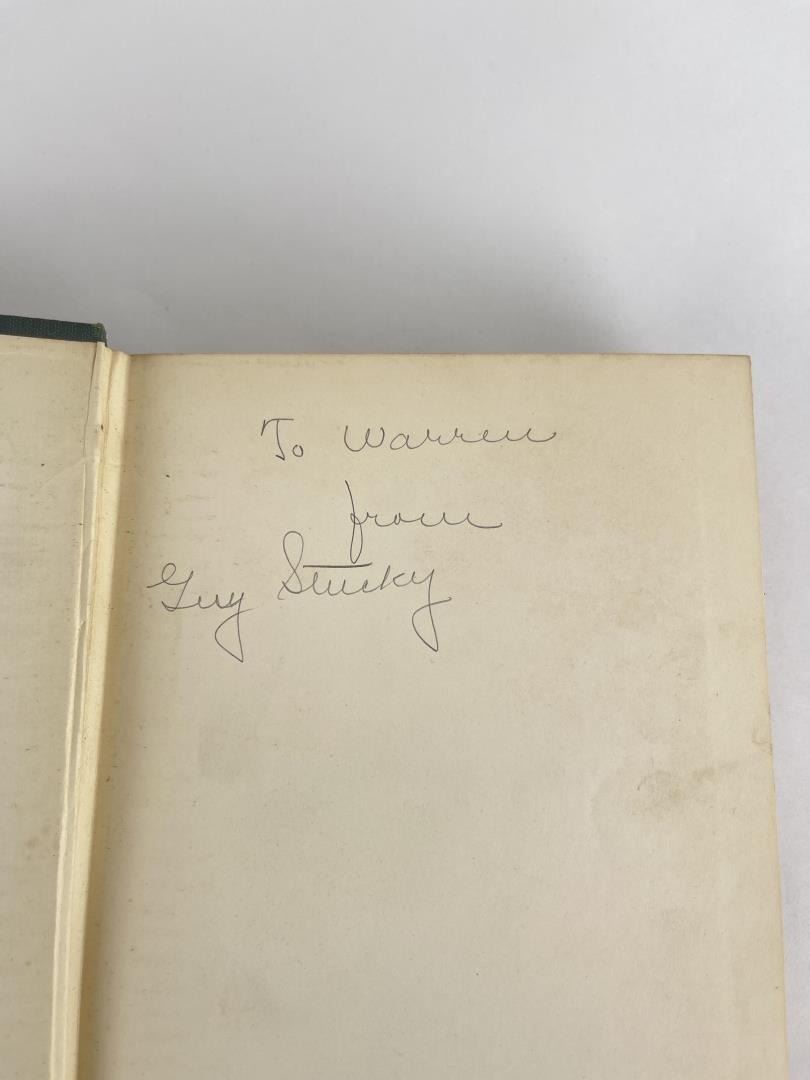 To Warren
from
Guy Stucky